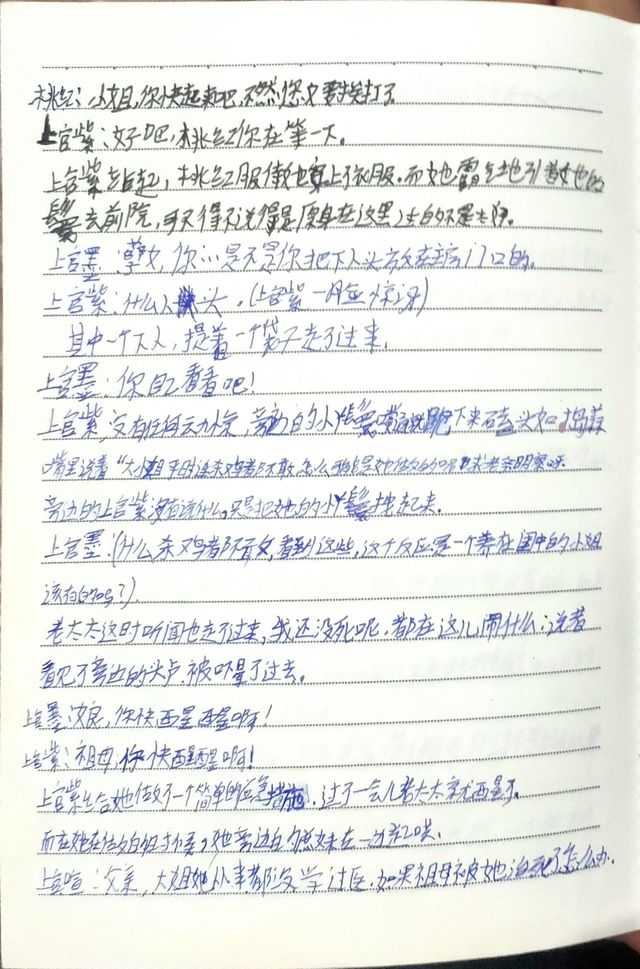 桃红：小姐，你快起来吧，不然您又要挨打了
上官紫：好吧，桃红你在等一下。
上官紫起，桃红服侍她穿上衣服。而她霸气地引着她的
鬟去前院，不得不说得是原身在这里过的不是
上官墨：孽女，你…是不是你把下人头放在主房门口的。
上官紫：什么人头。（上官紫一脸惊讶）
其中一个下人，提着一个袋子走了过来。
上官墨：你自己看看吧！
上官紫，没有任何动静，旁边的小丫鬟嘴跪下来磕头如捣蒜
嘴里说着“大小姐平时连杀鸡都不敢，怎么可能是她做的呢？求老爷明察呀
旁边的上官紫没有说什么。只是把她的小丫鬟扶起来。
上官墨：（什么杀鸡都不敢，看到这些，这个反应是一个养在闺中的小姐
该有的吗？）
老太太这时听闻也走了过来，我还没死呢，都在这儿闹什么；说着
看见了旁边的头卢被吓晕了过去。
上官墨：娘，你快醒醒啊！
上官紫：祖母，你快醒醒啊！
上官紫给她做了一个简单的应急措施，过了一会儿老太太就醒了。
而在她在做的时候，她旁边的妹妹在一旁哄。
上官喧：父亲，大姐她从来都没学过医，如果祖母被她治死了怎么办